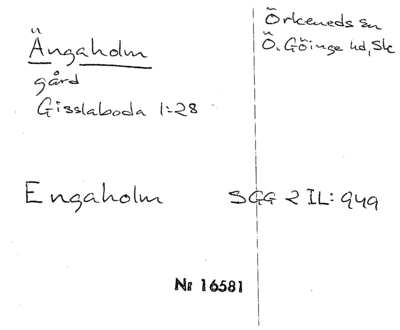 Ängaholm
gård
Gisslaboda 1:28
Örkeneds sn
Ö. Göinge hd, Sk
Engaholm SGG 2 IL: 949
Nr 16581